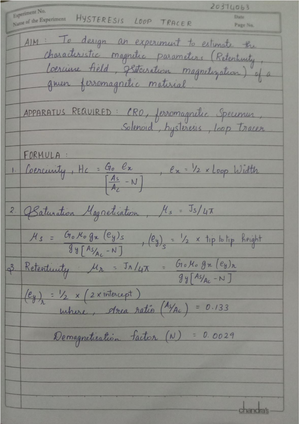 20314063
Experiment No.
Date
Name of the Experiment HYSTERESIS LOOP TRACER
Page No.
AIM : To design an experiment to estimate the
characteristic magnetic parameters (Retentivity
Coercive field, Saturation magnetization) of a
given ferromagnetic material
APPARATUS REQUIRED : CRO, ferromagnetic Specimen,
Solenoid, hysteresis, loop Tracer
FORMULA :
1. Coercivity, Hc = G₀ eₓ / [As/Ac - N] , eₓ = 1/2 × Loop Width
2. Saturation Magnetisation, Ms = Js/4π
Ms = G₀ M₀ gx (ey)s / gy [As/Ac - N] , (ey)s = 1/2 × tip to tip height
3. Retentivity Mr = Jr/4π = G₀ M₀ gx (ey)r / gy [As/Ac - N]
(ey)r = 1/2 × (2 × intercept)
where, Area ratio (As/Ac) = 0.133
Demagnetisation factor (N) = 0.0029
chandan